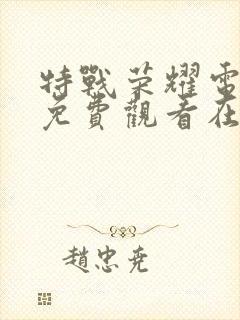 特戰荣耀電
免費觀看在
趙忠尭